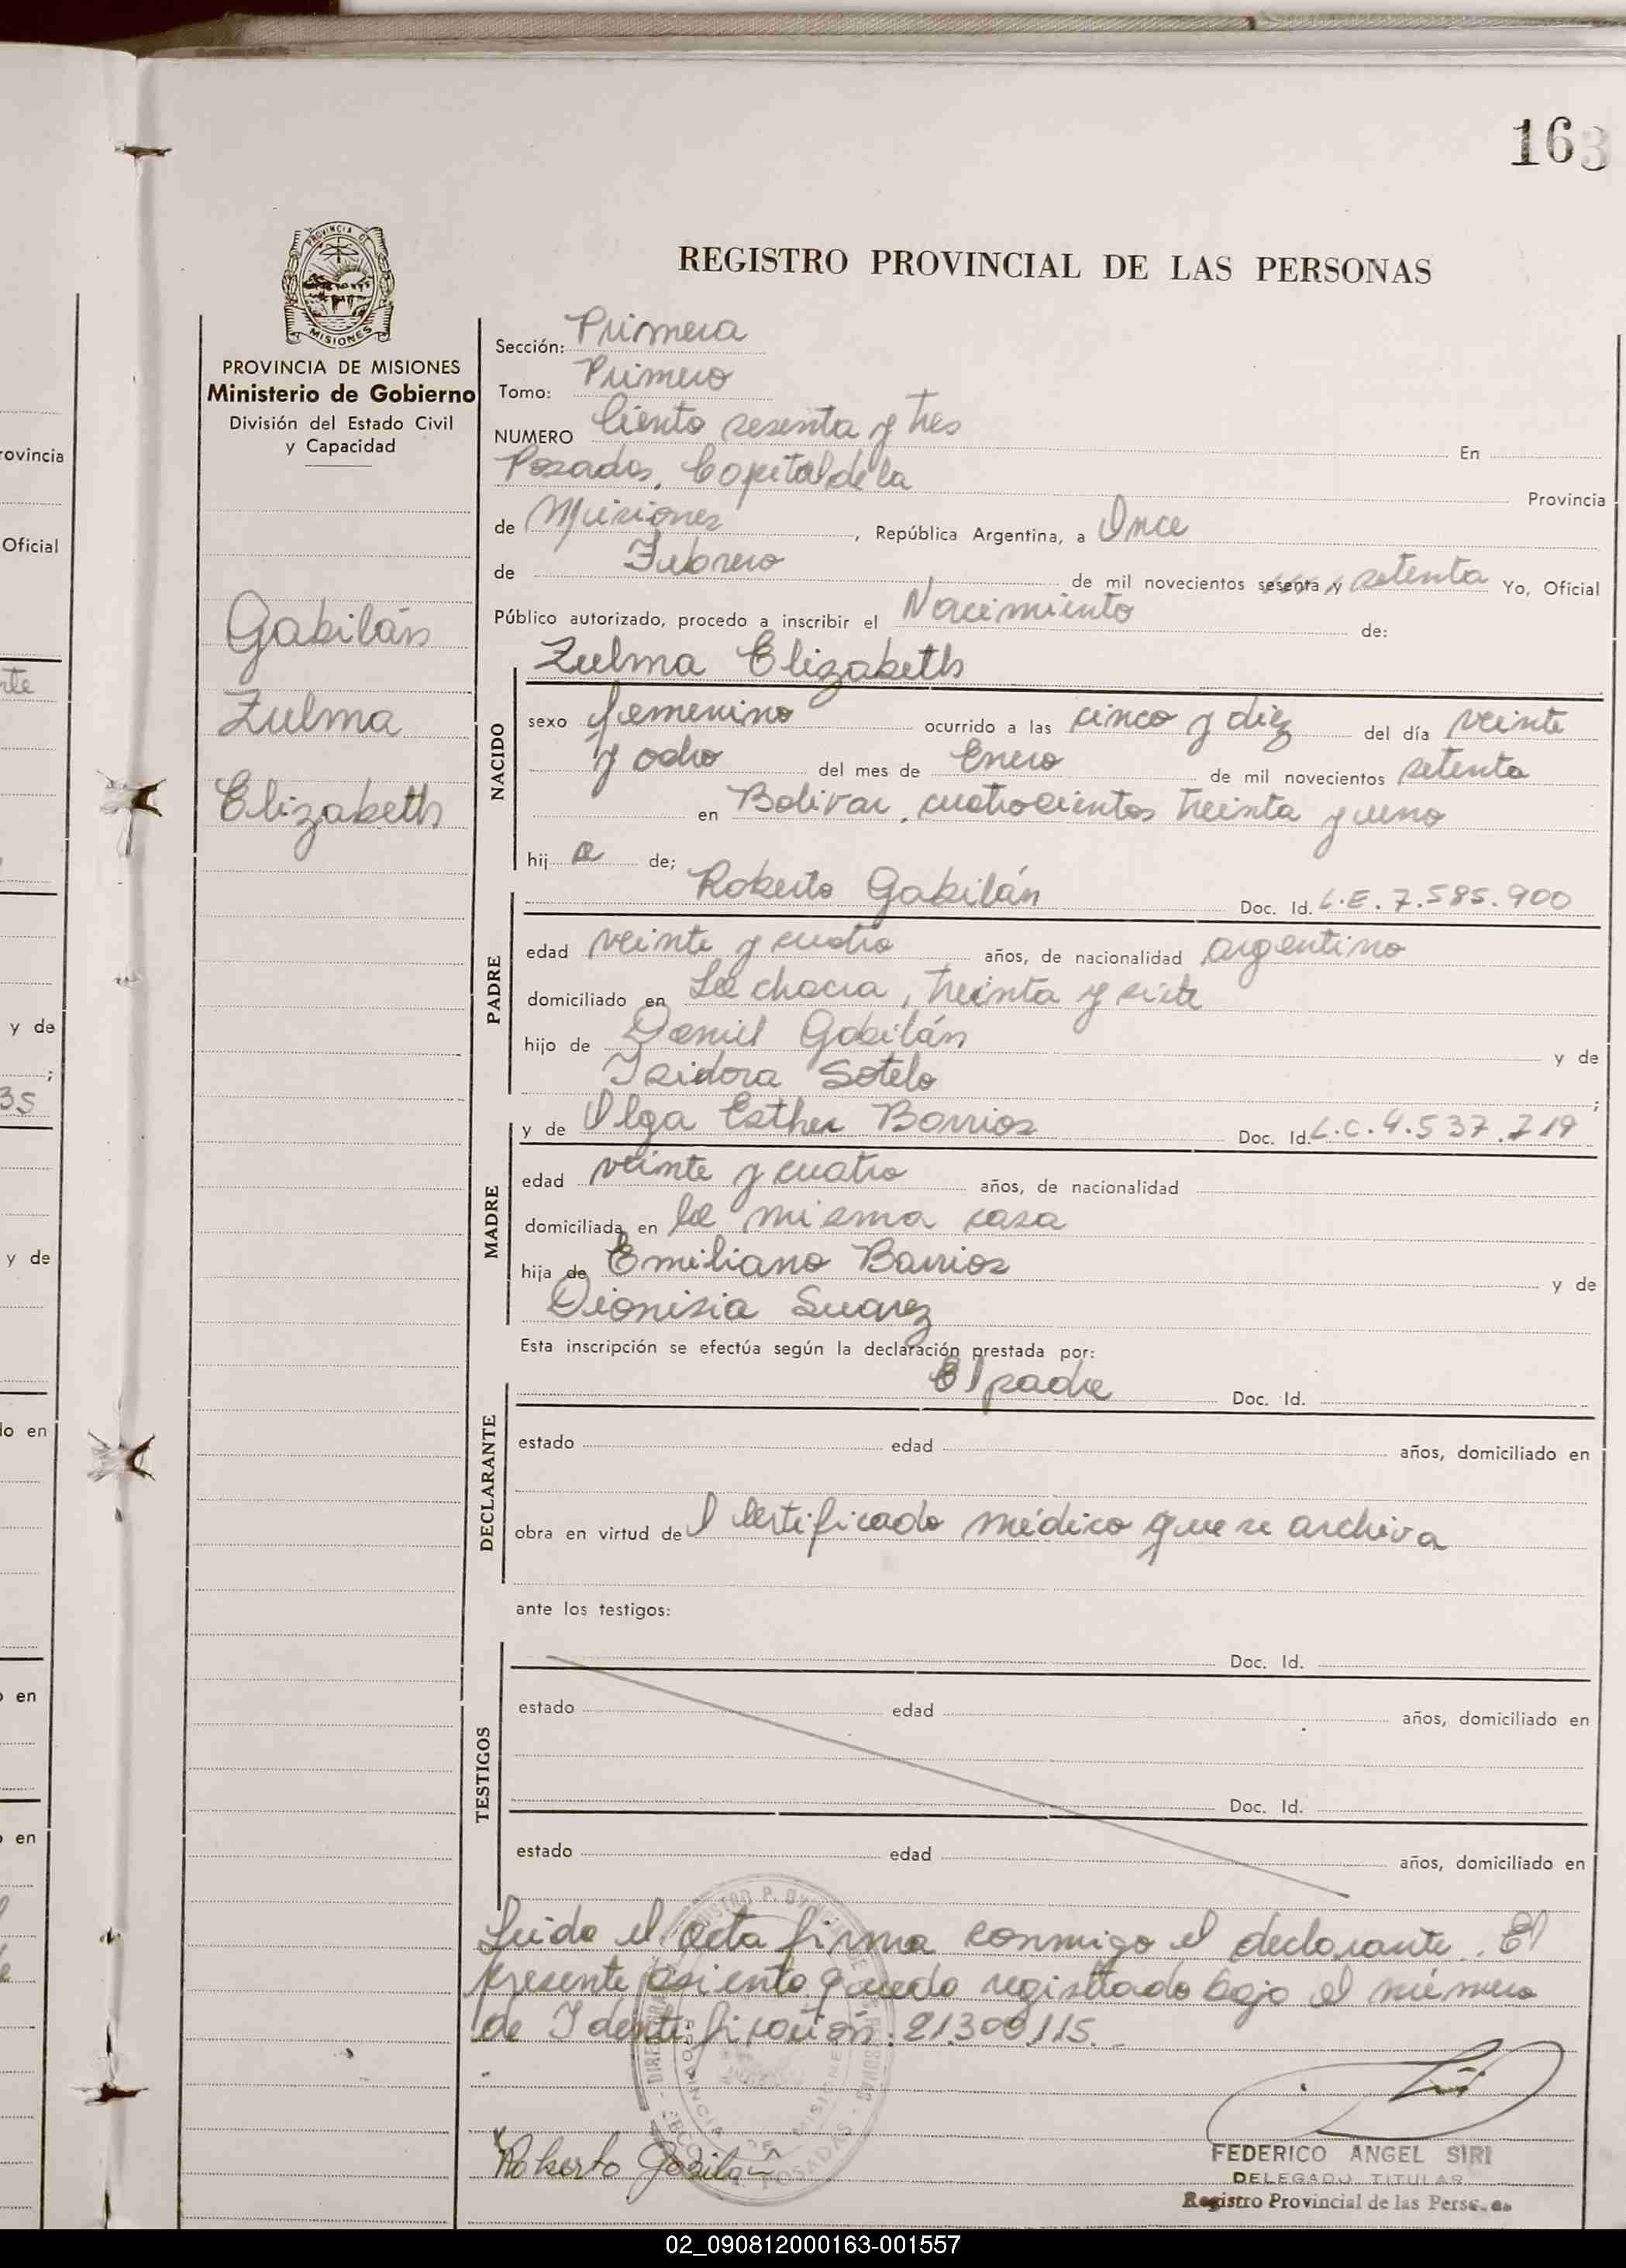 163
REGISTRO PROVINCIAL DE LAS PERSONAS
PROVINCIA DE
MISIONES
PROVINCIA DE MISIONES
Ministerio de Gobierno
División del Estado Civil
y Capacidad
Gabilán
Zulma
Elizabeth
Sección: Primera
Tomo: Primero
NUMERO Ciento sesenta y tres En
Posadas, Capital de la Provincia
de Misiones, República Argentina, a Once
de Febrero de mil novecientos sesenta y setenta Yo, Oficial
Público autorizado, procedo a inscribir el Nacimiento de:
Zulma Elizabeth
NACIDO
sexo femenino ocurrido a las cinco y diez del día veinte
y ocho del mes de Enero de mil novecientos setenta
en Bolivar, cuatrocientos treinta y uno
hij a de;
Roberto Gabilán Doc. Id. L.E. 7.585.900
PADRE
edad veinte y cuatro años, de nacionalidad argentino
domiciliado en La chacra, treinta y siete
hijo de Daniel Gabilán y de
Isidora Sotelo ;
y de Olga Esther Barrios Doc. Id. L.C. 4.537.719
MADRE
edad veinte y cuatro años, de nacionalidad
domiciliada en la misma casa
hija de Emiliano Barrios y de
Dionisia Suarez
Esta inscripción se efectúa según la declaración prestada por:
El padre Doc. Id.
DECLARANTE
estado edad años, domiciliado en
obra en virtud del Certificado médico que se archiva
ante los testigos:
Doc. Id.
TESTIGOS
estado edad años, domiciliado en
Doc. Id.
estado edad años, domiciliado en
Leida el acta firma conmigo el declarante. El
presente asiento quedo registrado bajo el número
de Identificación: 21.300.115.
Roberto Gabilán
FEDERICO ANGEL SIRI
DELEGADO TITULAR
Registro Provincial de las Personas
rovincia
Oficial
nte
y de
;
35
y de
do en
en
en
02_090812000163-001557